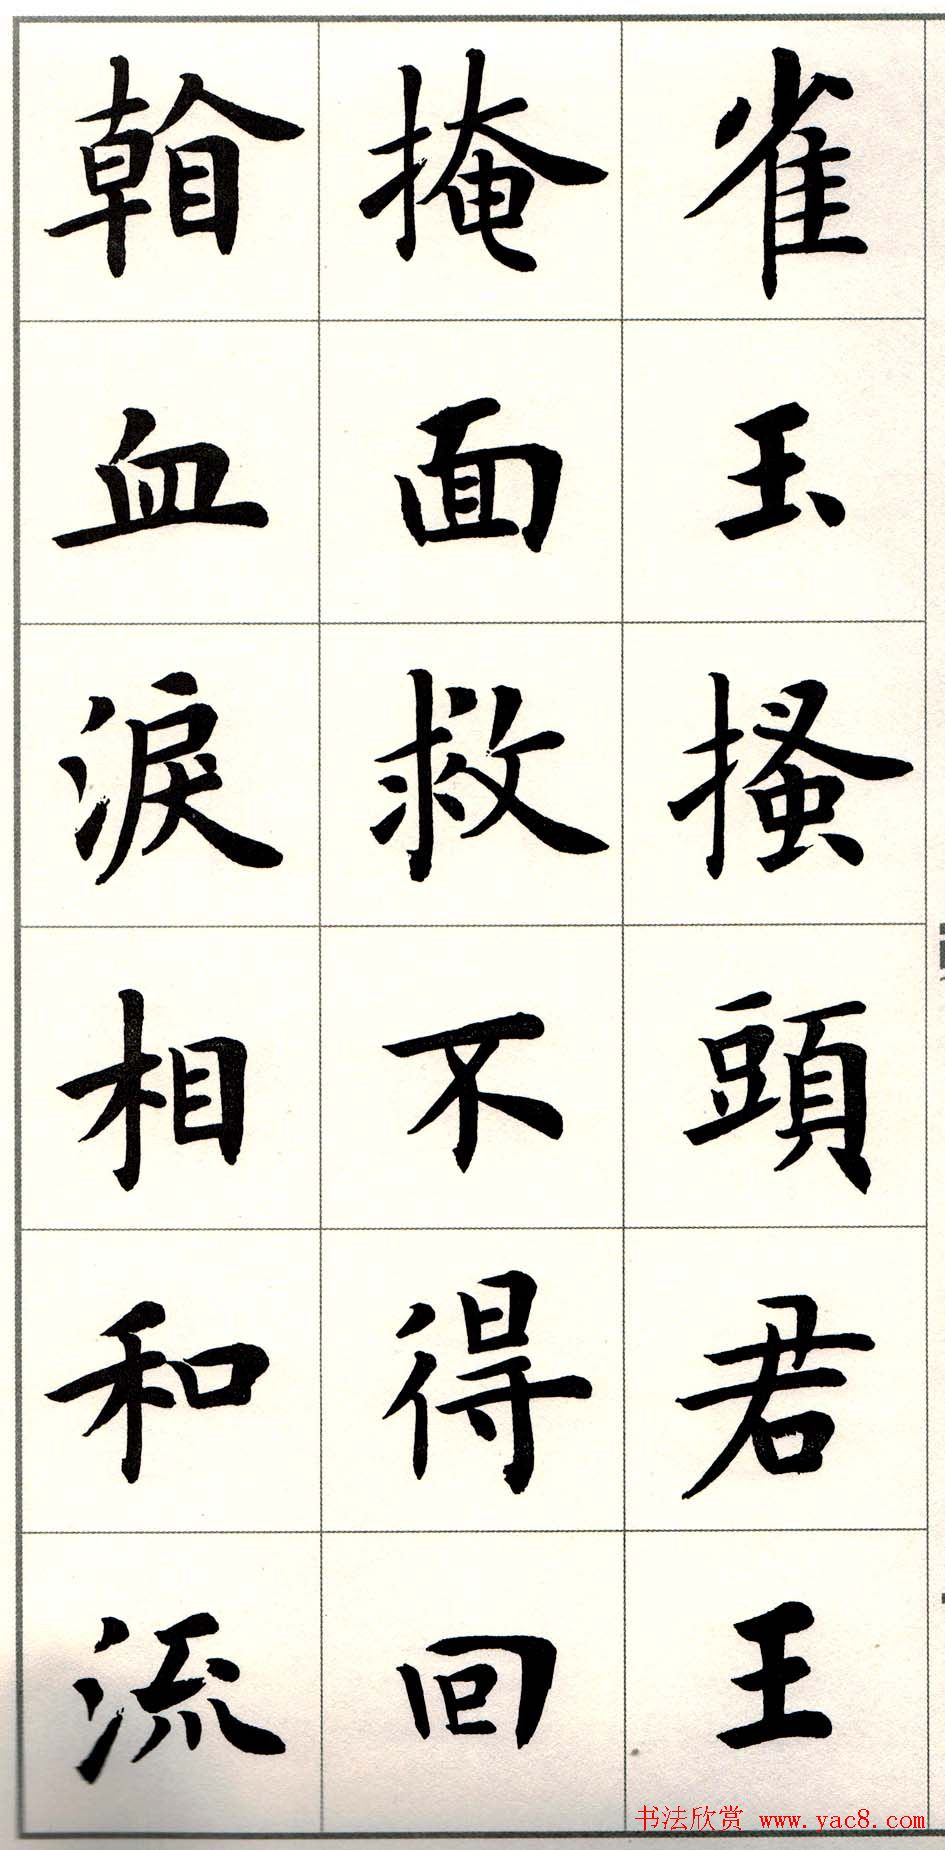 雀玉搔頭君王
掩面救不得回
看血淚相和流
书法欣赏 www.yac8.com